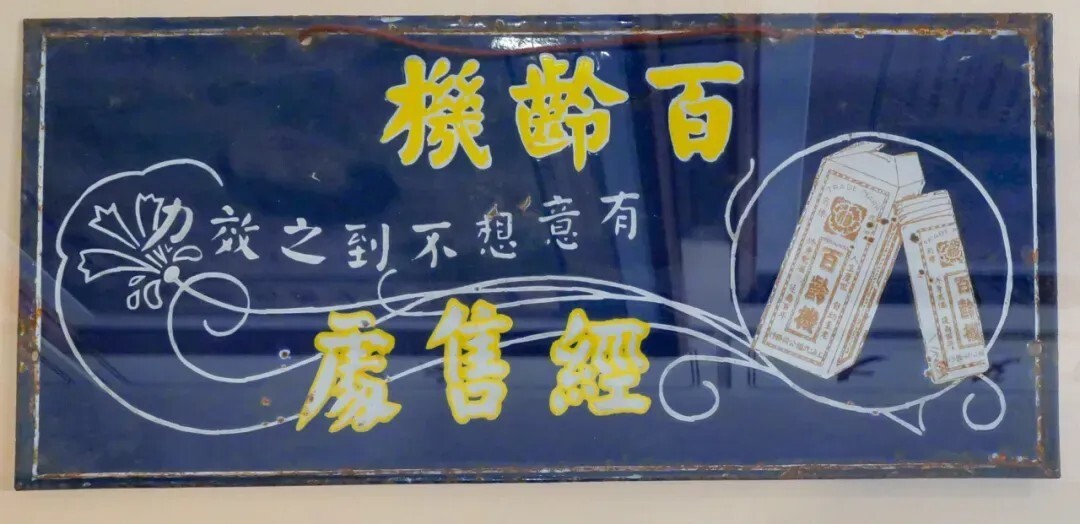 百齡機
有意想不到之效力
經售處
TRADE
百齡機
百齡機